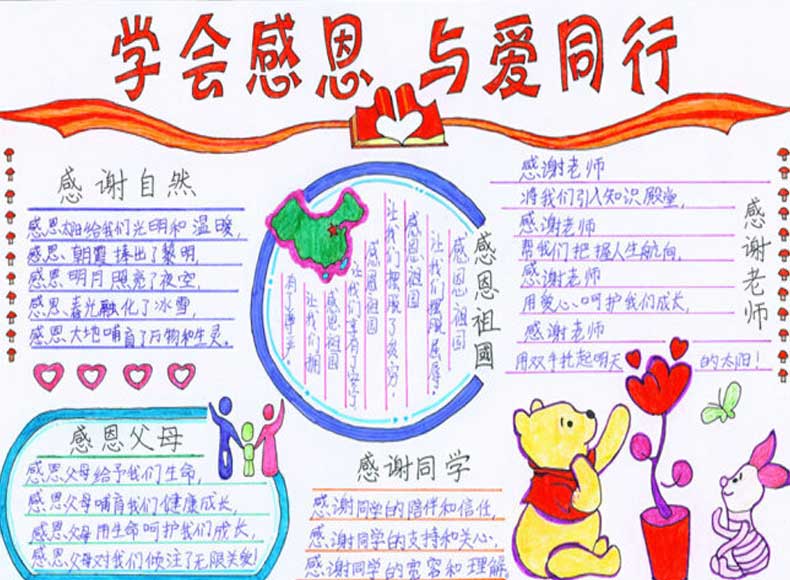 学会感恩 与爱同行
感谢自然
感恩太阳给我们光明和温暖,
感恩、朝霞捧出了黎明,
感恩明月照亮了夜空,
感恩、春光融化了冰雪,
感恩大地哺育了万物和生灵。
感恩祖國
感恩祖国
让我们摆脱屈辱。
感恩祖国
让我们摆脱了贫穷,
感恩祖国
让我们享有了
感恩祖国
让我们拥
有了尊严。
感谢老师
感谢老师
将我们引入知识殿堂,
感谢老师
帮我们把握人生航向,
感谢老师
用爱心呵护我们成长,
感谢老师
用双手托起明天的太阳!
感恩父母
感恩父母给予我们生命,
感恩父母哺育我们健康成长,
感恩父母用生命呵护我们成长,
感恩父母对我们倾注了无限关爱!
感谢同学
感谢同学的陪伴和信任,
感谢同学的支持和关心,
感谢同学的宽容和理解。